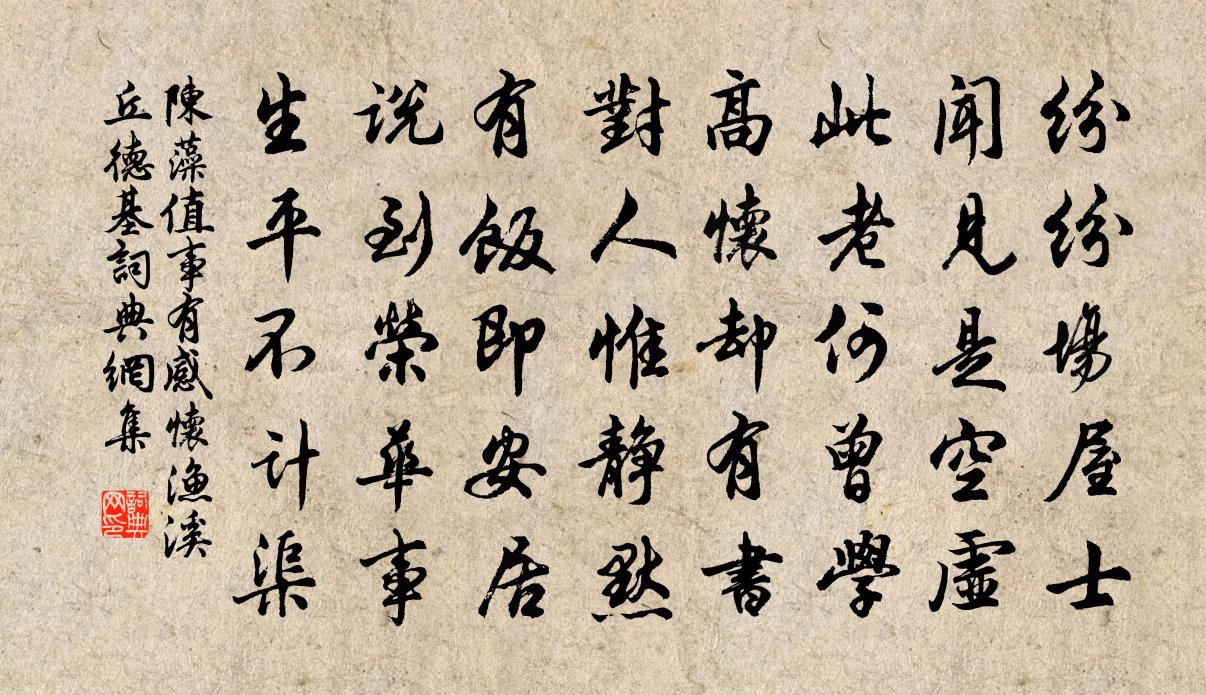 紛紛場屋士
聞見是空虛
此老何曾學
高懷却有書
對人惟靜默
有飯即安居
說到榮華事
生平不計渠
陳藻值事有感懷漁溪
丘德基詞典網集
詞典
网印